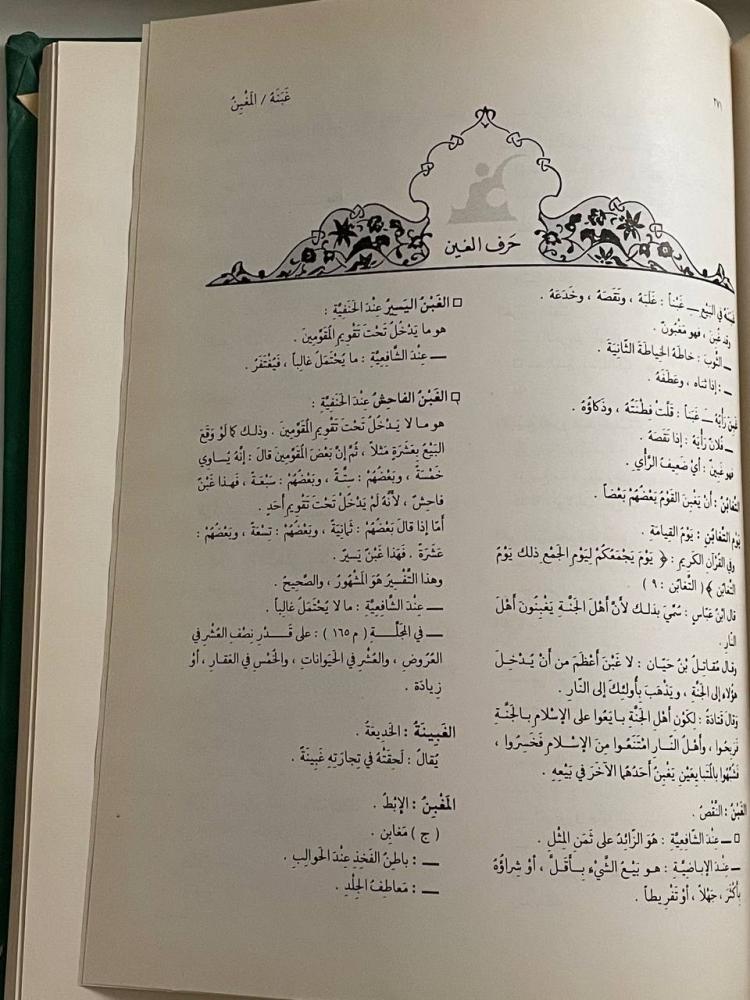 غَبَنَهُ / المَغْبِنُ
٢٧١
حَرف الغين
غَبَنَهُ في البَيْعِ ــ غَبْناً : غَلَبَهُ ، ونَقَصَهُ ، وخَدَعَهُ .
وقد غُبِنَ ، فهو مَغْبُونٌ .
ــ الثَّوبَ : خاطَهُ الخِياطَةَ الثَّانِيَةَ .
ــ : إذا ثناه ، وعَطَفَهُ .
غَبِنَ رَأْيُهُ ــ غَبَناً : قَلَّتْ فِطْنَتُهُ ، وذَكاؤُهُ .
ــ فُلانٌ رَأْيَهُ : إذا نَقَصَهُ .
فهو غَبِينٌ : أيْ ضَعِيفُ الرَّأْيِ .
التَّغابُنُ : أنْ يَغْبِنَ القَوْمُ بَعْضُهُمْ بَعْضاً .
يَوْمُ التَّغابُنِ : يَوْمُ القِيامَةِ .
وفي القُرْآنِ الكَرِيمِ : ﴿ يَوْمَ يَجْمَعُكُمْ لِيَوْمِ الجَمْعِ ذلِكَ يَوْمُ
التَّغَابُنِ ﴾ ( التَّغابُن : ٩ )
قال ابْنُ عَبّاسٍ : سُمِّيَ بذلِكَ لأنَّ أهْلَ الجَنَّةِ يَغْبِنُونَ أهْلَ
النّارِ .
وقال مُقاتِلُ بْنُ حَيّان : لا غَبْنَ أعْظَمُ من أنْ يُدْخَلَ
هؤُلاءِ إلى الجَنَّةِ ، ويَذْهَبَ بِأُولئِكَ إلى النّارِ .
وقالَ قَتادَةُ : لِكَوْنِ أهْلِ الجَنَّةِ بايَعُوا على الإسْلامِ بِالجَنَّةِ
فَرَبِحُوا ، وأهْلُ النّارِ امْتَنَعُوا مِنَ الإسْلامِ فَخَسِرُوا ،
فَشُبِّهُوا بِالمُتَبايِعَيْنِ يَغْبِنُ أحَدُهُما الآخَرَ في بَيْعِهِ .
الغَبْنُ : النَّقْصُ .
□ ــ عِنْدَ الشّافِعِيَّةِ : هُوَ الزّائِدُ على ثَمَنِ المِثْلِ .
ــ عِنْدَ الإباضِيَّةِ : هو بَيْعُ الشَّيْءِ بِأقَلَّ ، أوْ شِراؤُهُ
بِأكْثَرَ ، جَهْلاً ، أوْ تَفْرِيطاً .
□ الغَبْنُ اليَسِيرُ عِنْدَ الحَنَفِيَّةِ :
هو ما يَدْخُلُ تَحْتَ تَقْوِيمِ المُقَوِّمِينَ .
ــ عِنْدَ الشّافِعِيَّةِ : ما يُحْتَمَلُ غالِباً ، فَيُغْتَفَرُ .
□ الغَبْنُ الفاحِشُ عِنْدَ الحَنَفِيَّةِ :
هو ما لا يَدْخُلُ تَحْتَ تَقْوِيمِ المُقَوِّمِينَ . وذلِكَ كما لَوْ وَقَعَ
البَيْعُ بِعَشَرَةٍ مَثَلاً ، ثُمَّ إنَّ بَعْضَ المُقَوِّمِينَ قالَ : إنَّهُ يُساوِي
خَمْسَةً ، وبَعْضُهُمْ : سِتَّةً ، وبَعْضُهُمْ : سَبْعَةً ، فَهذا غَبْنٌ
فاحِشٌ ، لأنَّهُ لَمْ يَدْخُلْ تَحْتَ تَقْوِيمِ أحَدٍ .
أمّا إذا قالَ بَعْضُهُمْ : ثَمانِيَةً ، وبَعْضُهُمْ : تِسْعَةً ، وبَعْضُهُمْ :
عَشْرَةً . فَهذا غَبْنٌ يَسيرٌ .
وهذا التَّفْسِيرُ هُوَ المَشْهُورُ ، والصَّحِيحُ .
ــ عِنْدَ الشّافِعِيَّةِ : ما لا يُحْتَمَلُ غالِباً .
ــ في المَجَلَّةِ ( م ١٦٥ ) : على قَدْرِ نِصْفِ العُشْرِ في
العُرُوضِ ، والعُشْرِ في الحَيَواناتِ ، والخُمْسِ في العَقارِ ، أوْ
زِيادَة .
الغَبِينَةُ : الخَدِيعَةُ .
يُقالُ : لَحِقَتْهُ في تِجارَتِهِ غَبِينَةٌ .
المَغْبِنُ : الإبْطُ .
( ج ) مَغابِن .
ــ : باطِنُ الفَخِذِ عِنْدَ الحَوالِبِ .
ــ : مَعاطِفُ الجِلْدِ .